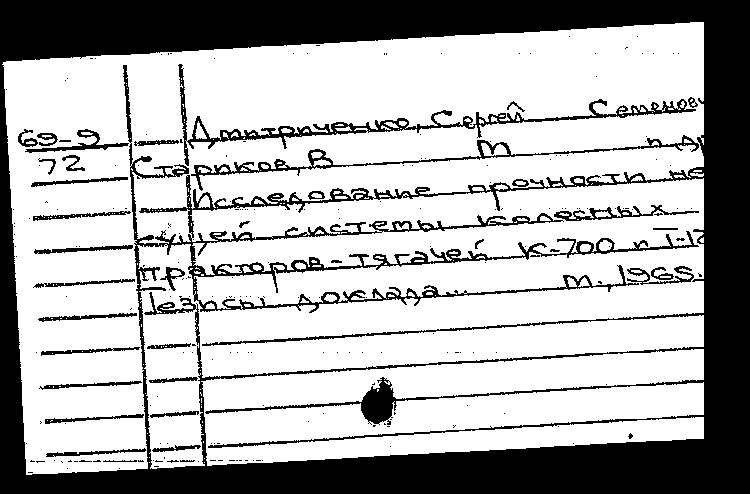 69-9
72
Дмитриченко, Сергей Семенович
Стариков, В М и др
Исследование прочности не
сущей системы колесных
тракторов-тягачей К-700 и Т-12
Тезисы доклада... М., 1968.